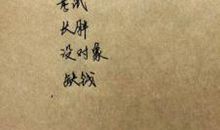 考试
长胖
没对象
缺钱